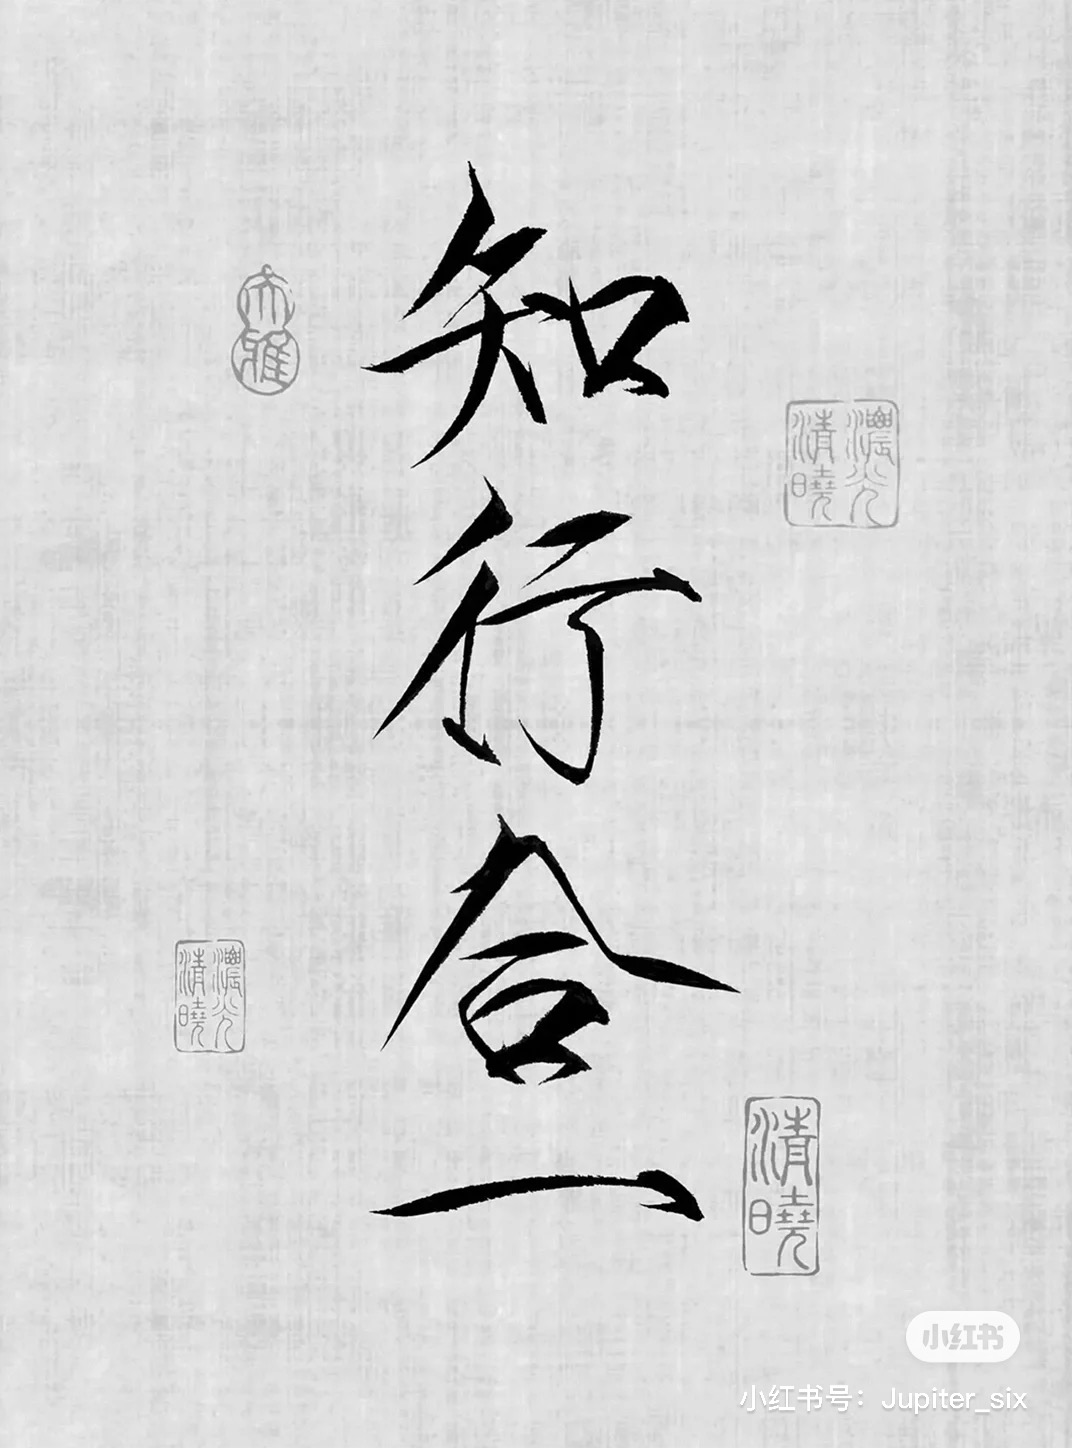 知行合一
大雅
濃光
清曉
濃光
清曉
清曉
小红书
小红书号：Jupiter_six